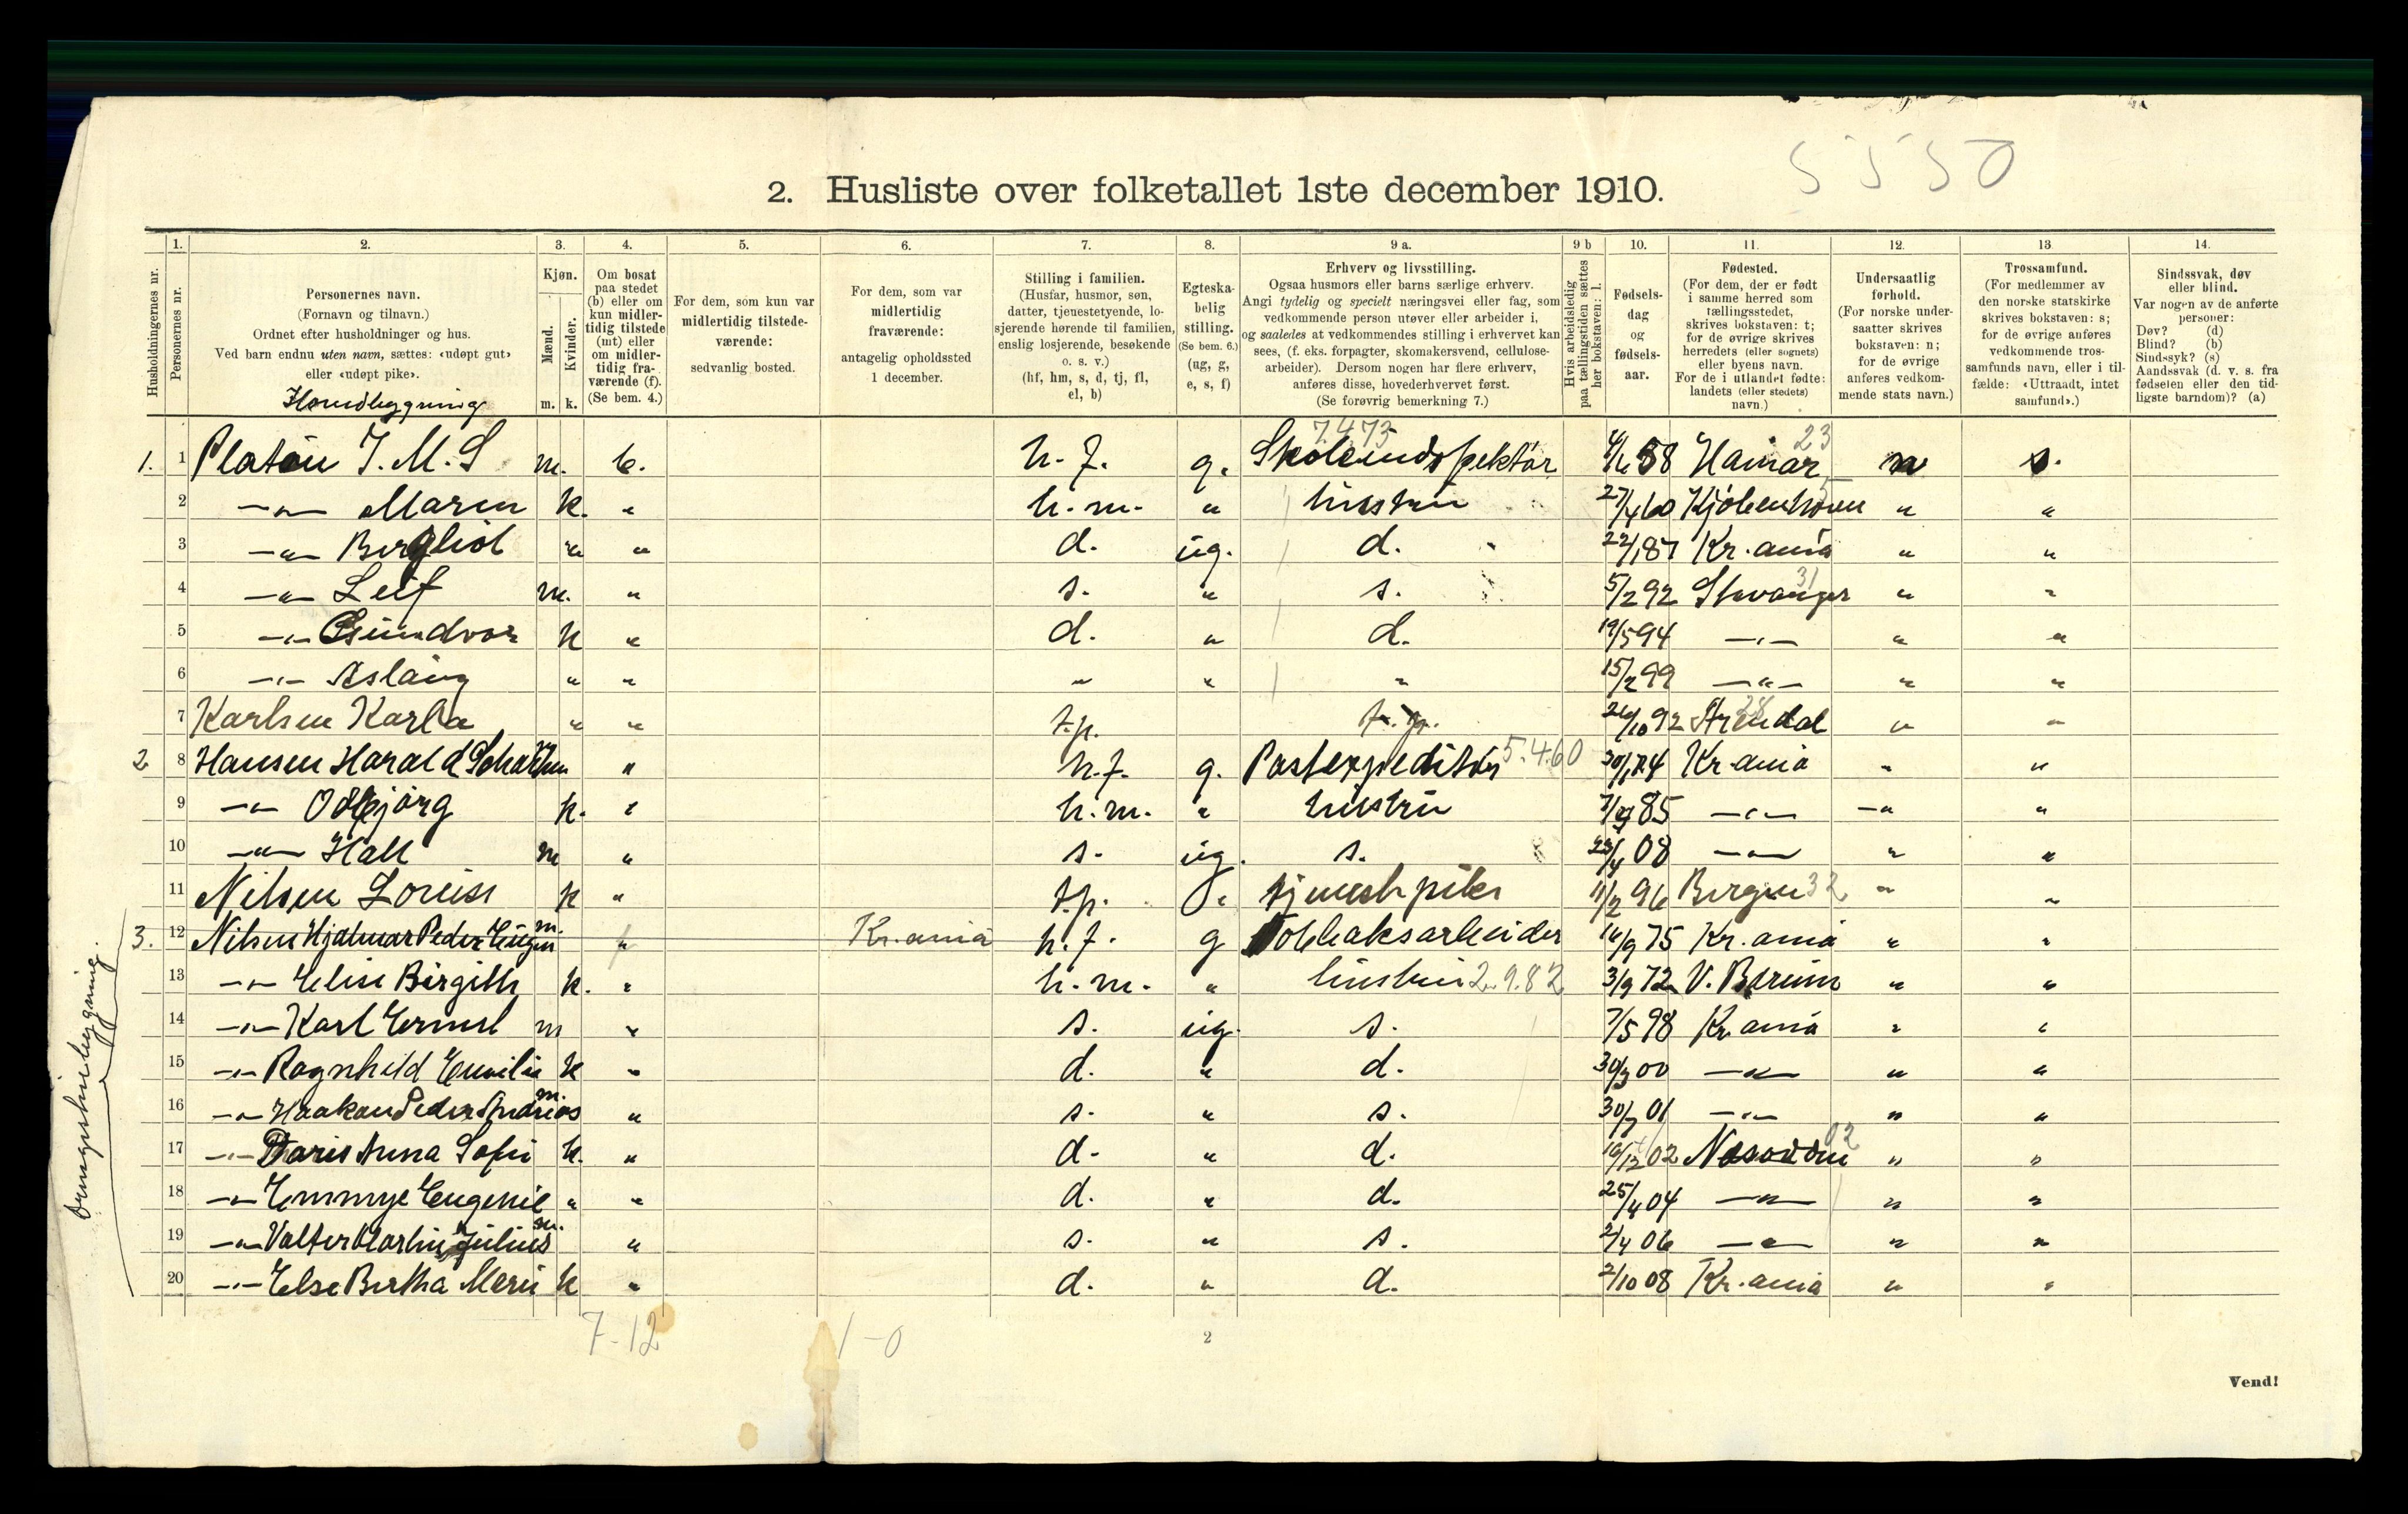 5550
2. Husliste over folketallet 1ste december 1910.
Husholdningernes nr.
1. Personernes nr.
2. Personernes navn.
(Fornavn og tilnavn.)
Ordnet efter husholdninger og hus.
Ved barn endnu uten navn, sættes: «udøpt gut»
eller «udøpt pike».
3. Kjøn.
Mænd. m.
Kvinder. k.
4. Om bosat
paa stedet
(b) eller om
kun midler-
tidig tilstede
(mt) eller
om midler-
tidig fra-
værende (f).
(Se bem. 4.)
5. For dem, som kun var
midlertidig tilstede-
værende:
sedvanlig bosted.
6. For dem, som var
midlertidig
fraværende:
antagelig opholdssted
1 december.
7. Stilling i familien.
(Husfar, husmor, søn,
datter, tjenestetyende, lo-
sjerende hørende til familien,
enslig losjerende, besøkende
o. s. v.)
(hf, hm, s, d, tj, fl,
el, b)
8. Egteska-
belig
stilling.
(Se bem. 6.)
(ug, g,
e, s, f)
9 a. Erhverv og livsstilling.
Ogsaa husmors eller barns særlige erhverv.
Angi tydelig og specielt næringsvei eller fag, som
vedkommende person utøver eller arbeider i,
og saaledes at vedkommendes stilling i erhvervet kan
sees, (f. eks. forpagter, skomakersvend, cellulose-
arbeider). Dersom nogen har flere erhverv,
anføres disse, hovederhvervet først.
(Se forøvrig bemerkning 7.)
9 b Hvis arbeidsledig
paa tællingstiden sættes
her bokstaven: l.
10. Fødsels-
dag
og
fødsels-
aar.
11. Fødested.
(For dem, der er født
i samme herred som
tællingsstedet,
skrives bokstaven: t;
for de øvrige skrives
herredets (eller sognets)
eller byens navn.
For de i utlandet fødte:
landets (eller stedets)
navn.)
12. Undersaatlig
forhold.
(For norske under-
saatter skrives
bokstaven: n;
for de øvrige
anføres vedkom-
mende stats navn.)
13 Trossamfund.
(For medlemmer av
den norske statskirke
skrives bokstaven: s;
for de øvrige anføres
vedkommende tros-
samfunds navn, eller i til-
fælde: «Uttraadt, intet
samfund».)
14. Sindssvak, døv
eller blind.
Var nogen av de anførte
personer:
Døv? (d)
Blind? (b)
Sindssyk? (s)
Aandssvak (d. v. s. fra
fødselen eller den tid-
ligste barndom)? (a)
1. 1 Platou J. M. S m. b. h.f. g. Skoleindspektør 7.473 58 Hamar 23 n s.
2 —"— Maren k. " h.m. " hustru 27/4 60 Kjöbenhavn " "
3 —"— Bergliot " " d. ug. d. 22/1 87 Kr.ania " "
4 —"— Leif m. " s. " s. 5/2 92 Stavanger 31 " "
5 —"— Gundvor k " d. " d. 19/5 94 —"— " "
6 —"— Aslaug " " " " " 15/2 99 —"— " "
7 Karlsen Karla " " t.p. t.p. 26/10 92 Arendal 28 " "
2 8 Hansen Harald m " h.f. g. Postexpeditør 5.4.60 74 Kr.ania " "
9 —"— k. " h.m. " hustru 85 —"— —" "
10 —"— Hall m " s. ug. s. 23/4 08 —"— " "
11 Nilsen Louise k " t.p. tjenestepike 11/2 96 Bergen 32 " "
3. 12 Nilsen Hjalmar Peder Eugen m. f Kr.ania h.f. g Tobbaksarbeider 16/9 75 Kr.ania " "
13 —"— Elise Birgitte k. " h.m. " hustru 2.9.82 3/9 72 V. Bærum " "
14 —"— Karl Ernest m " s. ug. s. 7/5 98 Kr.ania " "
15 —"— Ragnhild Emilie k " d. " d. 30/3 00 —"— " "
16 —"— Haakon Peder Andreas m. " s. " s. 01 —"— " "
17 —"— Doris Anna Sofie k. " d. " d. 16/12 02 Nesodden 02 " "
18 —"— Emmye Eugenie " " d. " d. 25/4 04 —"— " "
19 —"— Valter Martin Julius m. " s. " s. 2/4 06 —"— " "
20 —"— Else Bertha Marie k " d. " d. 2/10 08 Kr.ania " "
7-12 1-0
2
Vend!